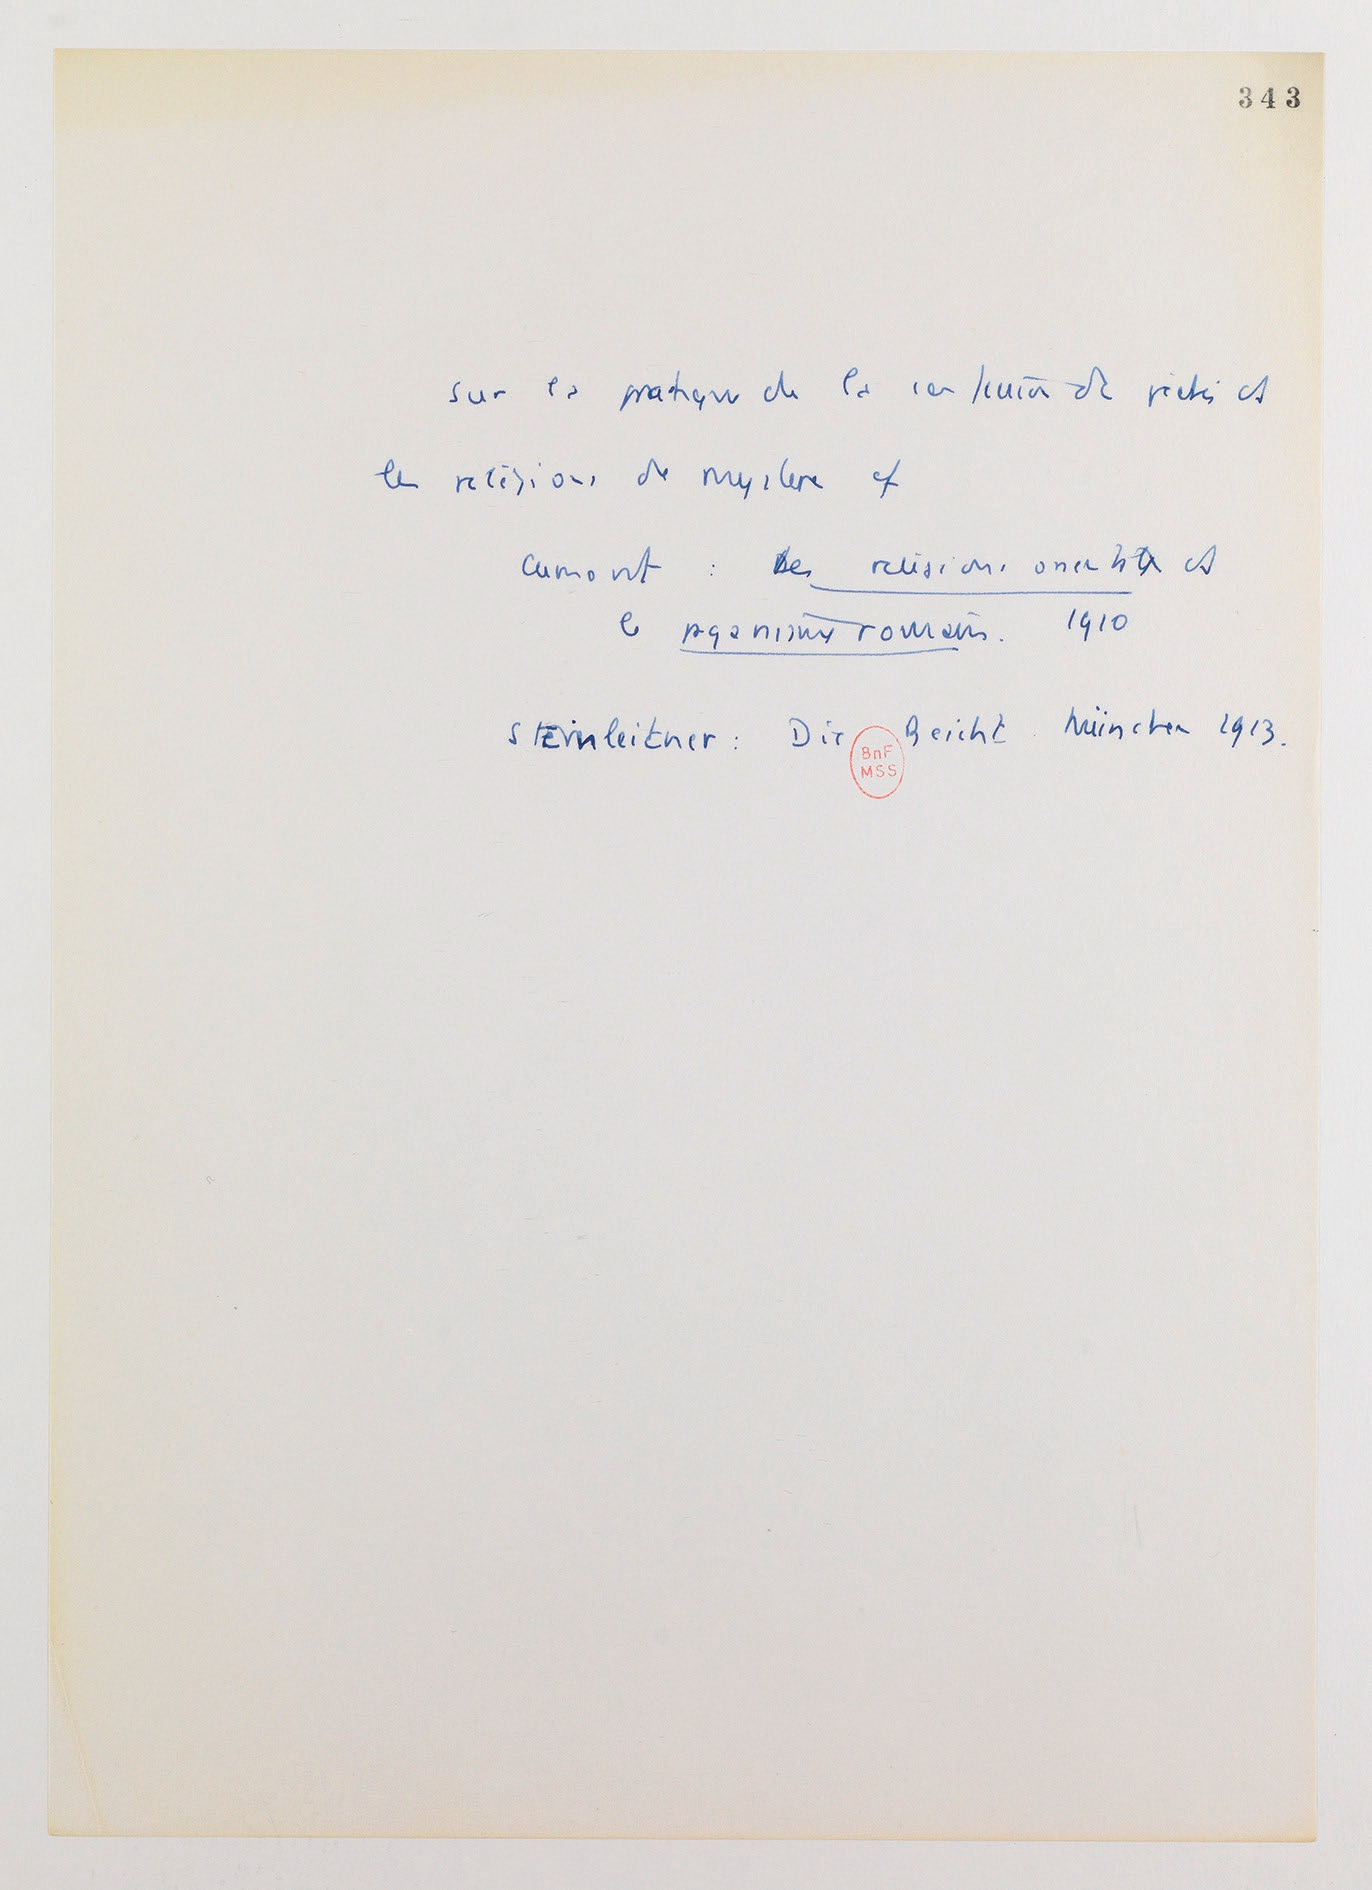 343
sur la pratique de la confession de péchés ds
les religions de mystère cf
Cumont : Les religions orientales ds
le paganisme romain. 1910
Steinleitner : Die Beicht. München 1913.
BnF
MSS